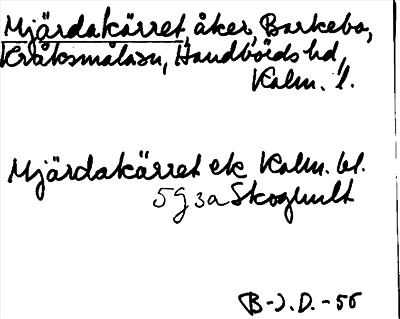 Mjärdakärret, åker, Barkebo,
Kråksmåla sn, Handbörds hd,
Kalm. l.
Mjärdakärret ek Kalm. bl.
5 g 3a Skoghult
B-J.D. - 56